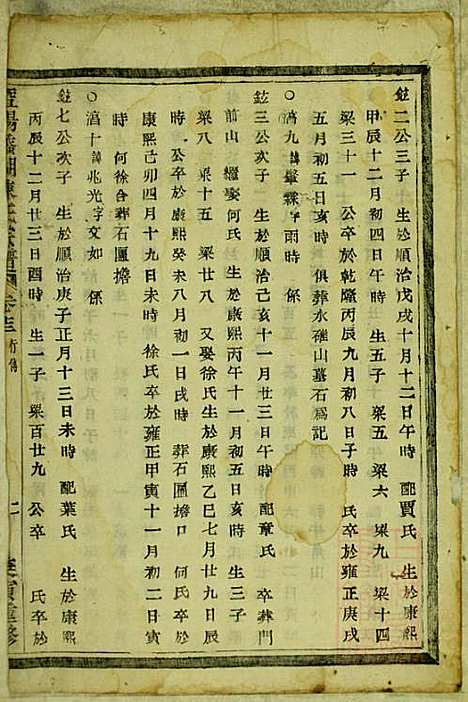 鉉二公三子　生於順治戊戌十月十二日午時　配賈氏　生於康熙
甲辰十二月初四日午時　生五子　梁五　梁六　梁九　梁十四
梁三十一　公卒於乾隆丙辰九月初八日子時　氏卒於雍正庚戌
五月初五日亥時　俱葬水碓山墓石爲記
○滈九諱肇霖字雨時　係
鉉三公次子　生於順治己亥十一月廿三日午時　配章氏　卒葬門
前山　繼娶何氏　生於康熙丙午十一月初五日亥時　生三子
梁八　梁十五　梁廿八　又娶徐氏生於康熙乙巳七月廿九日辰
時　公卒於康熙癸未八月初一日戌時　葬石匣擔口　何氏卒於
康熙己卯四月十九日未時　徐氏卒於雍正甲寅十一月初二日寅
時　何徐合葬石匣擔
○滈十諱兆光字文如　係
鉉七公次子　生於順治庚子正月十三日未時　配葉氏　生於康熙
丙辰十二月廿三日酉時　生一子　梁百廿九　公卒　氏卒於
宗譜　卷三　行傳　二